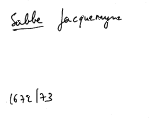 Sabbe Jacquemyns
1672/73